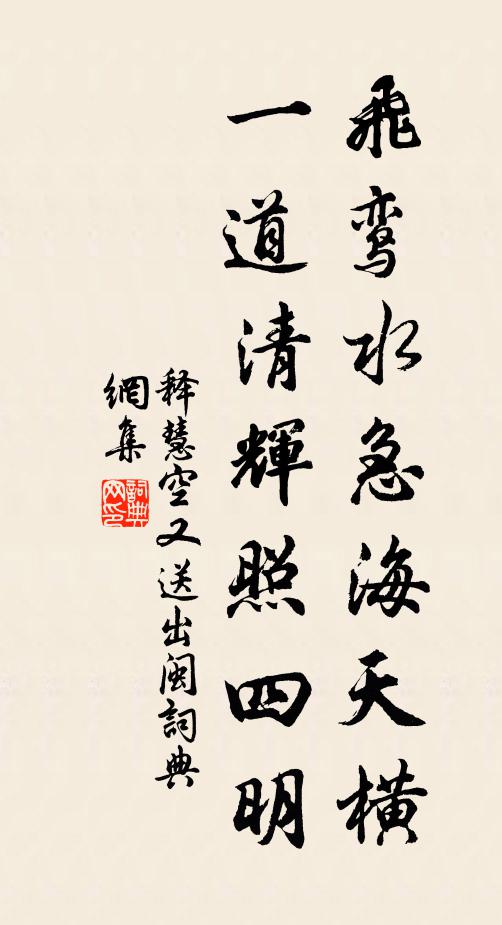 飛鸾水急海天橫
一道清輝照四明
释慧空又送出闽詞典
網集
詞典網印